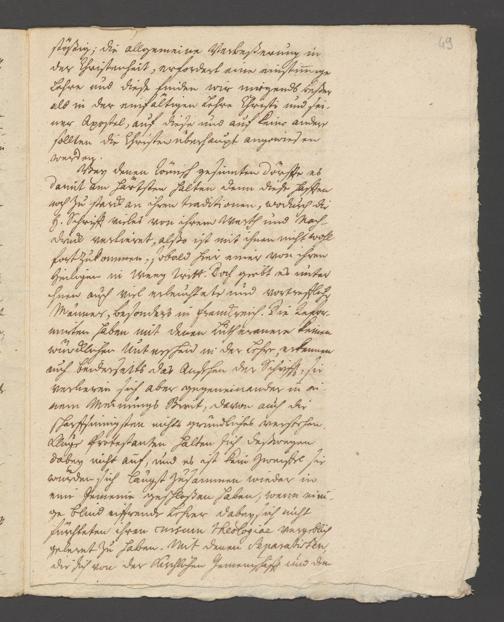 49
stößig; die allgemeine Verbeßerung in
der Christenheit, erfordert eine einstimmige
Lehre und diese finden wir nirgends beßer
als in der einfältigen Lehre Christi und sei-
ner Apostel, auf diese und auf keine andere
sollten die Christen überhaupt angewiesen
werden.
Bey denen Römisch gesinnten dörffte es
damit am härtsten halten denn diese hafften
noch zu starck an ihren traditionen, wodurch die
H. Schrifft vieles von ihrem Werth und Nach-
druck verlieret, also ist mit ihnen nicht wohl
fortzukommen, sobald hier einer von ihren
Heiligen in Weeg tritt. Doch giebt es unter
ihnen auch viel erleuchtete und vortreffliche
Männer, besonders in Franckreich. Die Refor-
mirten haben mit denen Lutheranern keinen
würcklichen Unterscheid in der Lehre, erkennen
auch beiderseits das Ansehen der Schrifft, sie
verlieren sich aber gegeneinander in ei-
nem Meinungs Streit, davon auch die
scharfsinnigsten nichts gründliches verstehen.
Kluge Protestanten halten sich deswegen
dabey nicht auf, und es ist kein Zweiffel sie
würden sich längst zusammen wieder in
eine Gemeine geschloßen haben, wenn eini-
ge blind eiffernde Lehrer dabey sich nicht
fürchteten ihren cursum theologiae vergeblich
gelernt zu haben. Mit denen Separatisten,
die sich von der Kirchlichen Gemeinschafft und den